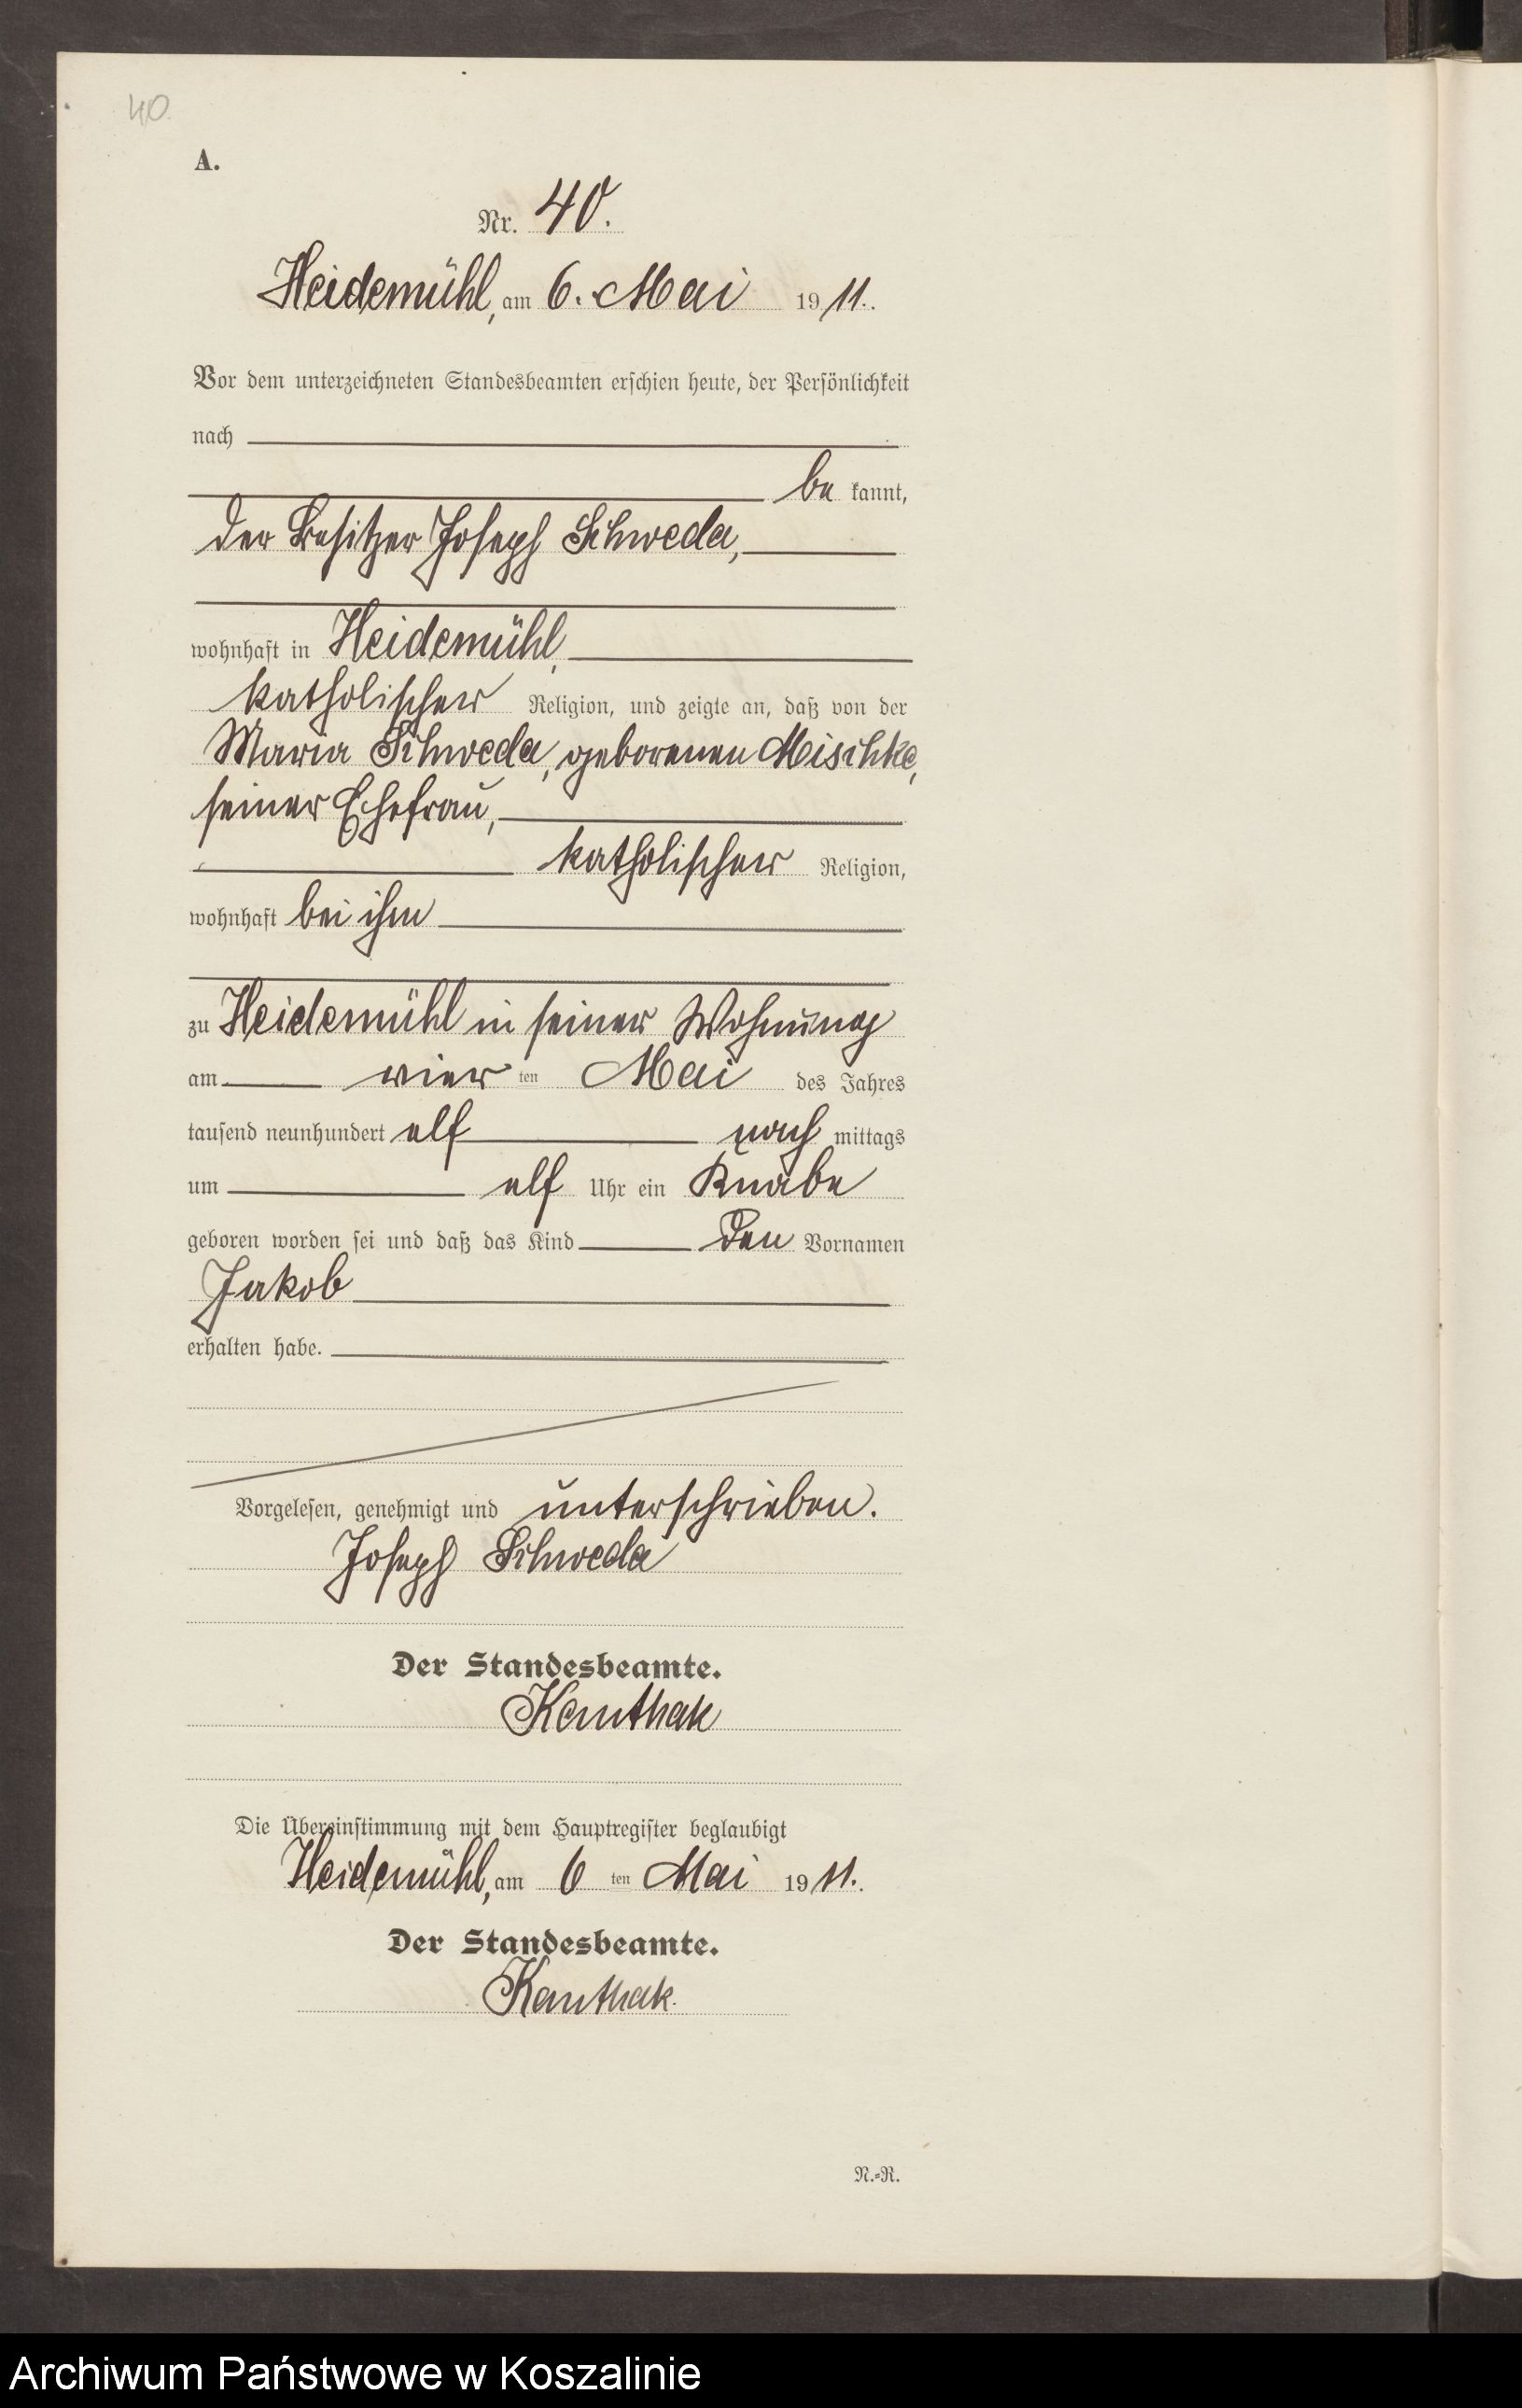 40.
A.
Nr. 40.
Heidemühl, am 6. Mai 1911.
Vor dem unterzeichneten Standesbeamten erschien heute, der Persönlichkeit
nach
be kannt,
der Besitzer Joseph Schweda,
wohnhaft in Heidemühl,
katholischer Religion, und zeigte an, daß von der
Maria Schweda, geborenen Mischke,
seiner Ehefrau,
katholischer Religion,
wohnhaft bei ihm
zu Heidemühl in seiner Wohnung
am vier ten Mai des Jahres
tausend neunhundert elf nach mittags
um elf Uhr ein Knabe
geboren worden sei und daß das Kind den Vornamen
Jakob
erhalten habe.
Vorgelesen, genehmigt und unterschrieben.
Joseph Schweda
Der Standesbeamte.
Kanthak
Die Übereinstimmung mit dem Hauptregister beglaubigt
Heidemühl, am 6 ten Mai 1911.
Der Standesbeamte.
Kanthak.
N.=R.
Archiwum Państwowe w Koszalinie